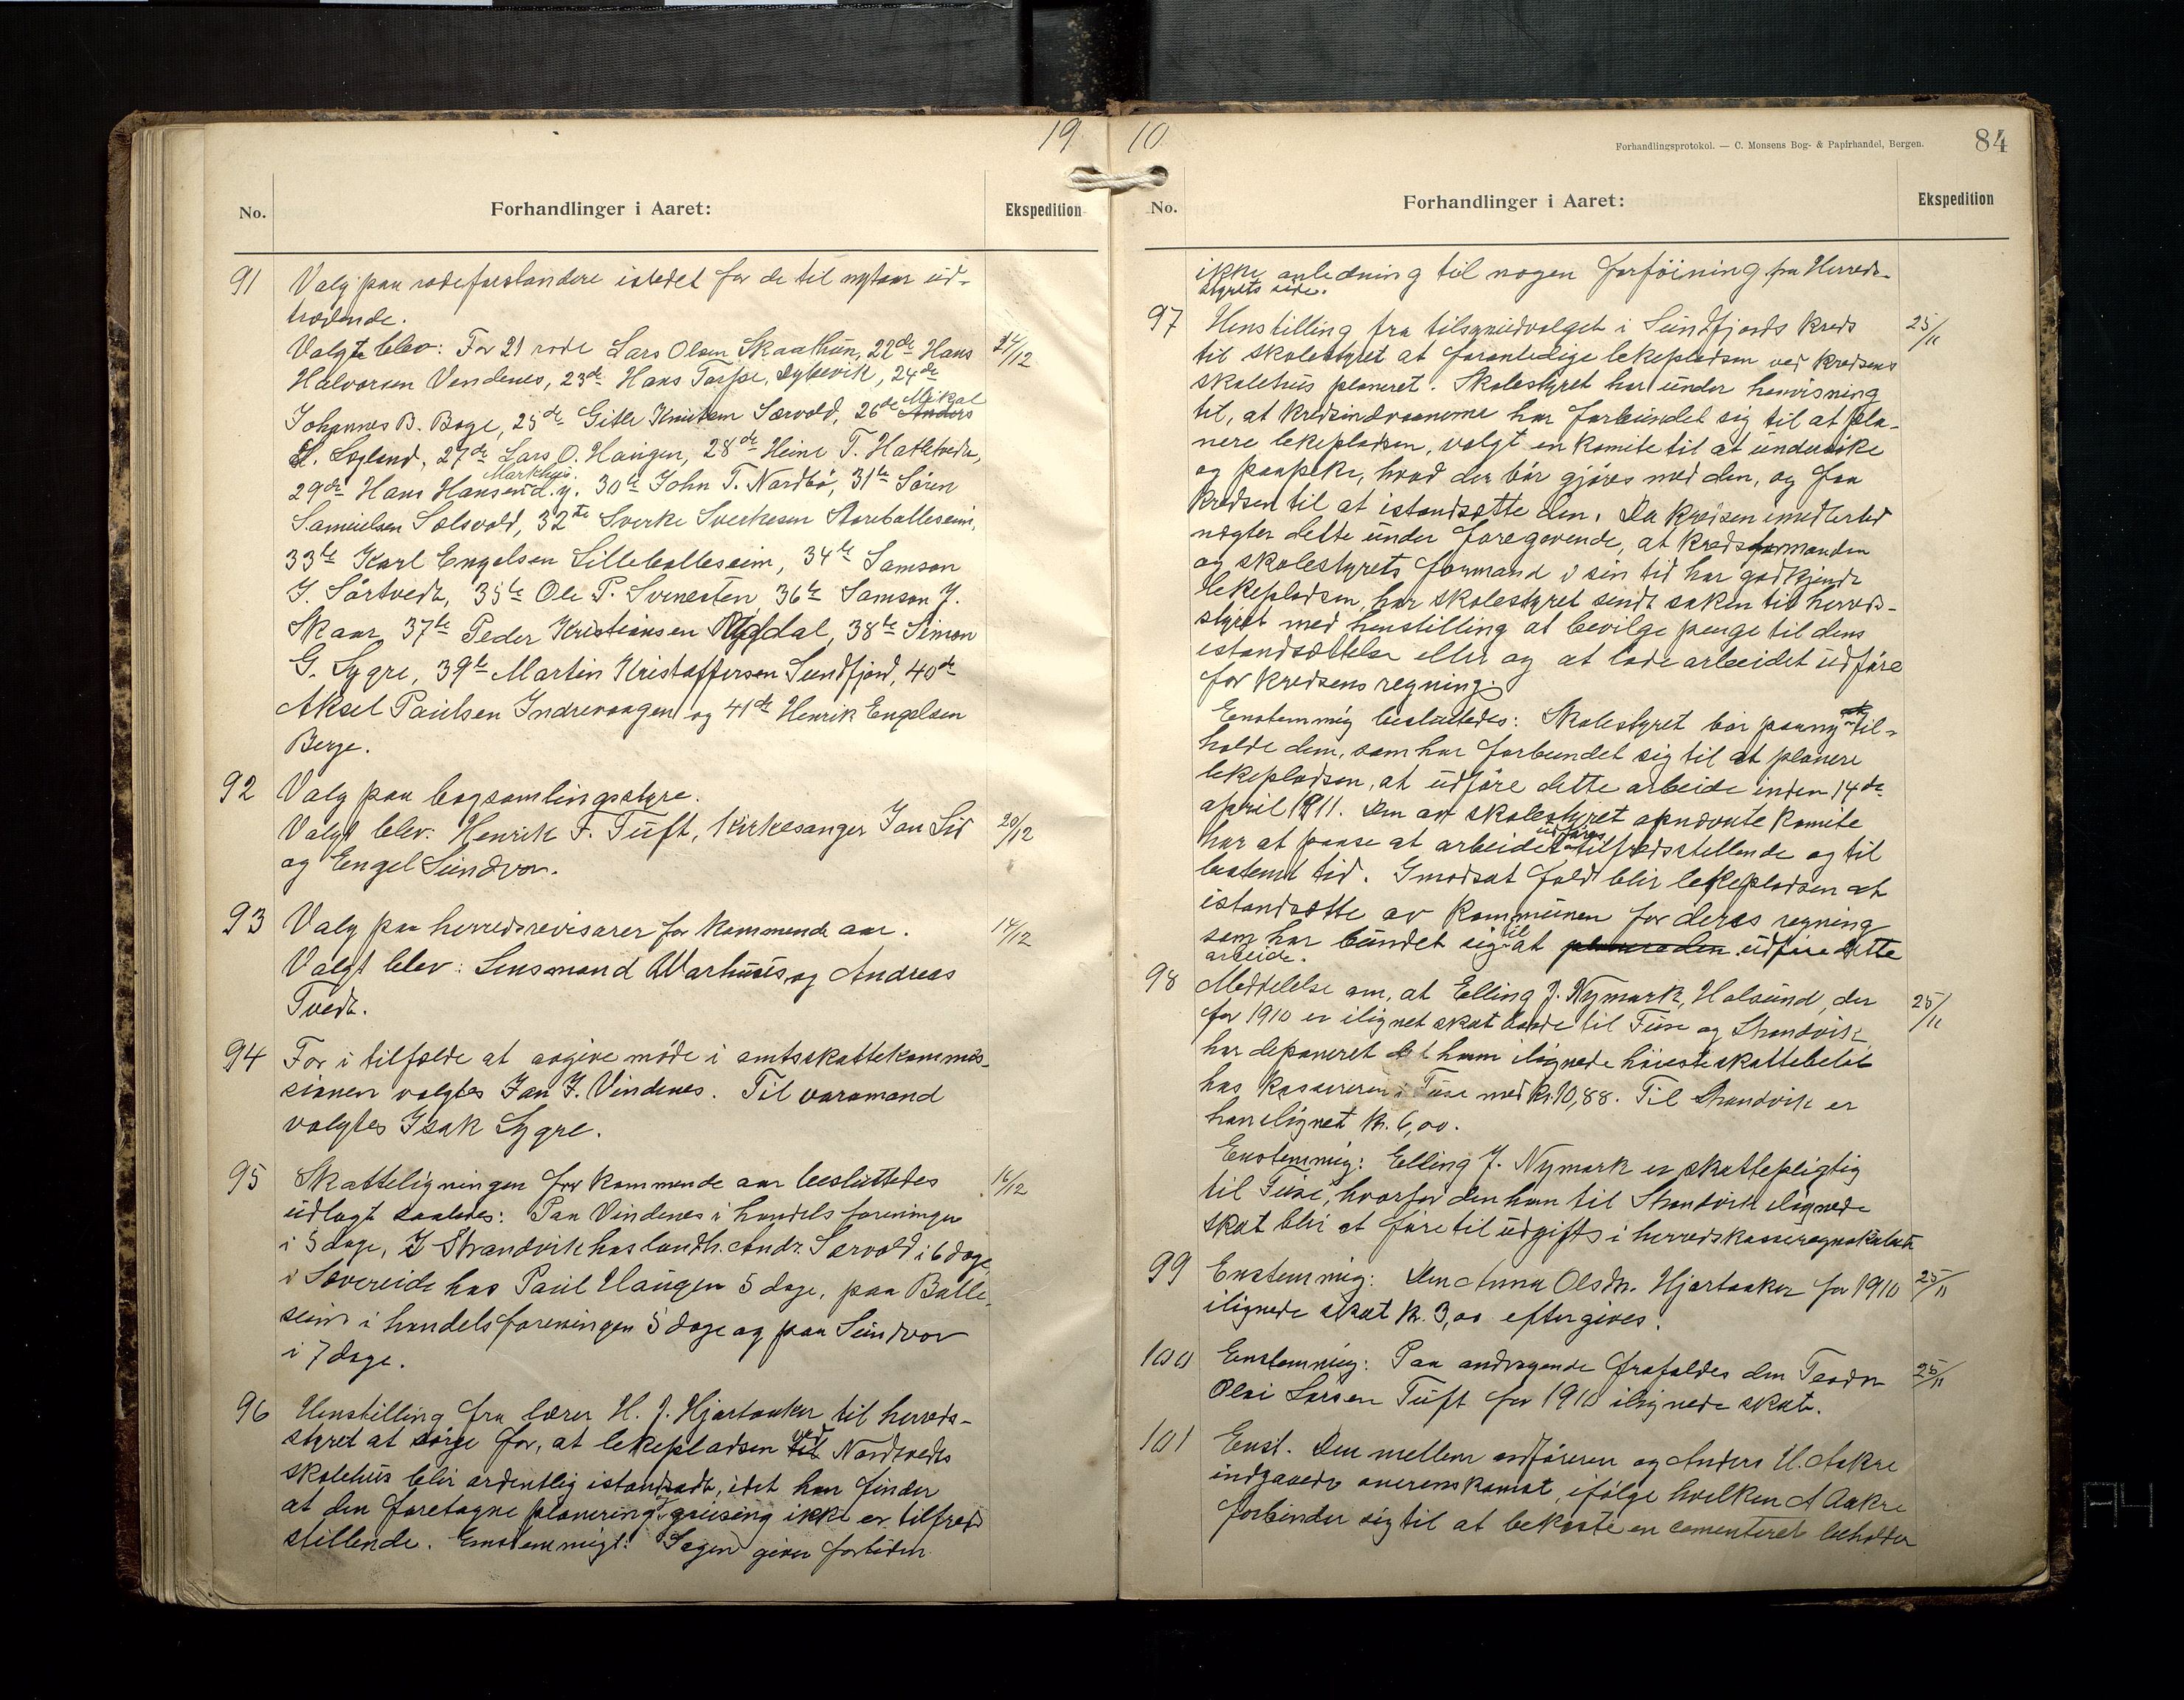 19
No.
Forhandlinger i Aaret:
Ekspedition
91 Valg paa rodeforstandere istedet for de til nytaar ud-
trædende.
Valgte blev: For 21 rode Lars Olsen Skaathun, 22de Hans 24/12
Halvorsen Vendenes, 23de Hans Tarpe, Dybevik, 24de
Johannes B. Boge, 25de Gitle Knutsen Særvold, 26de Anders Mikal
L. Løgland, 27de Lars O. Haugen, 28de Heine T. Hatletvedt,
29de Hans Hansen d.y. Markhus. 30te John T. Nordbø, 31te Søren
Samuelsen Sælsvold, 32te Sverke Sverkesen Storeballeseim,
33te Karl Engelsen Lilleballeseim, 34te Samson
J. Sørtvedt, 35te Ole P. Svinesten, 36te Samson J.
Skaar, 37te Peder Kristiansen Rygdal, 38te Simon
G. Sygre, 39te Martin Kristoffersen Sundfjord, 40de
Aksel Paulsen Indrevaagen og 41de Henrik Engelsen
Berge.
92 Valg paa bogsamlingsstyre.
Valgt blev: Henrik F. Tuft, kirkesanger Jan Lid 20/12
og Engel Sundvor.
93 Valg paa herredsrevisorer for kommende aar. 14/12
Valgt blev: Lensmand Warhuus og Andreas
Tvedt.
94 For i tilfælde at avgive møde i amtsskattekommis-
sionen valgtes Jan J. Vindenes. Til varamand
valgtes Isak Sygre.
95 Skatteligningen for kommende aar besluttedes 16/12
udlagt saaledes: Paa Vindenes i handelsforeningen
i 5 dage, I Strandvik hos landh. Andr. Særvold i 6 dage,
i Sævereide hos Paul Haugen 5 dage, paa Balle-
seim i handelsforeningen 5 dage og paa Sundvor
i 7 dage.
96 Henstilling fra lærer H. J. Hjartaaker til herreds-
styret at sørge for, at lekepladsen til ved Nordtvedts
skolehus blir ordentlig istandsadt, idet han finder
at den foretagne planering & grusing ikke er tilfreds
stillende. Enstemmigt: Sagen giver fortiden
10
Forhandlingsprotokol. — C. Monsens Bog- & Papirhandel, Bergen.
84
No.
Forhandlinger i Aaret:
Ekspedition
ikke anledning til nogen forføining fra Herreds-
styrets side.
97 Henstilling fra tilsynsudvalget i Sundfjords kreds 25/11
til skolestyret at foranledige lekepladsen ved kredsens
skolehus planeret. Skolestyret har under henvisning
til, at kredsindvaanerne har forbundet sig til at pla-
nere lekepladsen, valgt en komite til at undersøke
og paapeke, hvad der bør gjøres med den, og faa
kredsen til at istandsætte den. Da kredsen imedlertid
nægter dette under foregivende, at kredsformanden
og skolestyrets formand i sin tid har godkjendt
lekepladsen, har skolestyret sendt saken til herreds-
styret med henstilling at bevilge penge til dens
istandsættelse eller og at lade arbeidet udføre
for kredsens regning.
Enstemmig besluttedes: Skolestyret bør paany til-
holde dem, som har forbundet sig til at planere
lekepladsen, at udføre dette arbeide inden 14de
april 1911. Den av skolestyret opnævnte komite
har at paase at arbeidet udføres tilfredsstellende og til
bestemt tid. I modsat fald blir lekepladsen at
istandsætte av kommunen for deres regning
som har bundet sig til at planere den udføre dette
arbeide.
98 Meddelelse om, at Elling J. Nymark, Holsund, der 25/11
for 1910 er ilignet skat baade til Fuse og Strandvik
har deponeret det ham ilignede høieste skattebeløb
hos kassereren i Fuse med kr. 10,88. Til Strandvik er
han ilignet kr. 6,00.
Enstemmig: Elling J. Nymark er skattepligtig
til Fuse, hvorfor den ham til Strandvik ilignede
skat blir at føre til udgift i herredskasseregnskabet
99 Enstemmig: Den Anna Olsdtr. Hjartaaker for 1910 25/11
ilignede skat kr. 3,00 eftergives.
100 Enstemmig: Paa andragende frafaldes den Teodor 25/11
Olai Larsen Tuft for 1910 ilignede skat.
101 Enst. Den mellem ordføreren og Anders H. Aakre
indgaaede overenskomst, ifølge hvilken A Aakre
forbinder sig til at bekoste en cementeret beholder